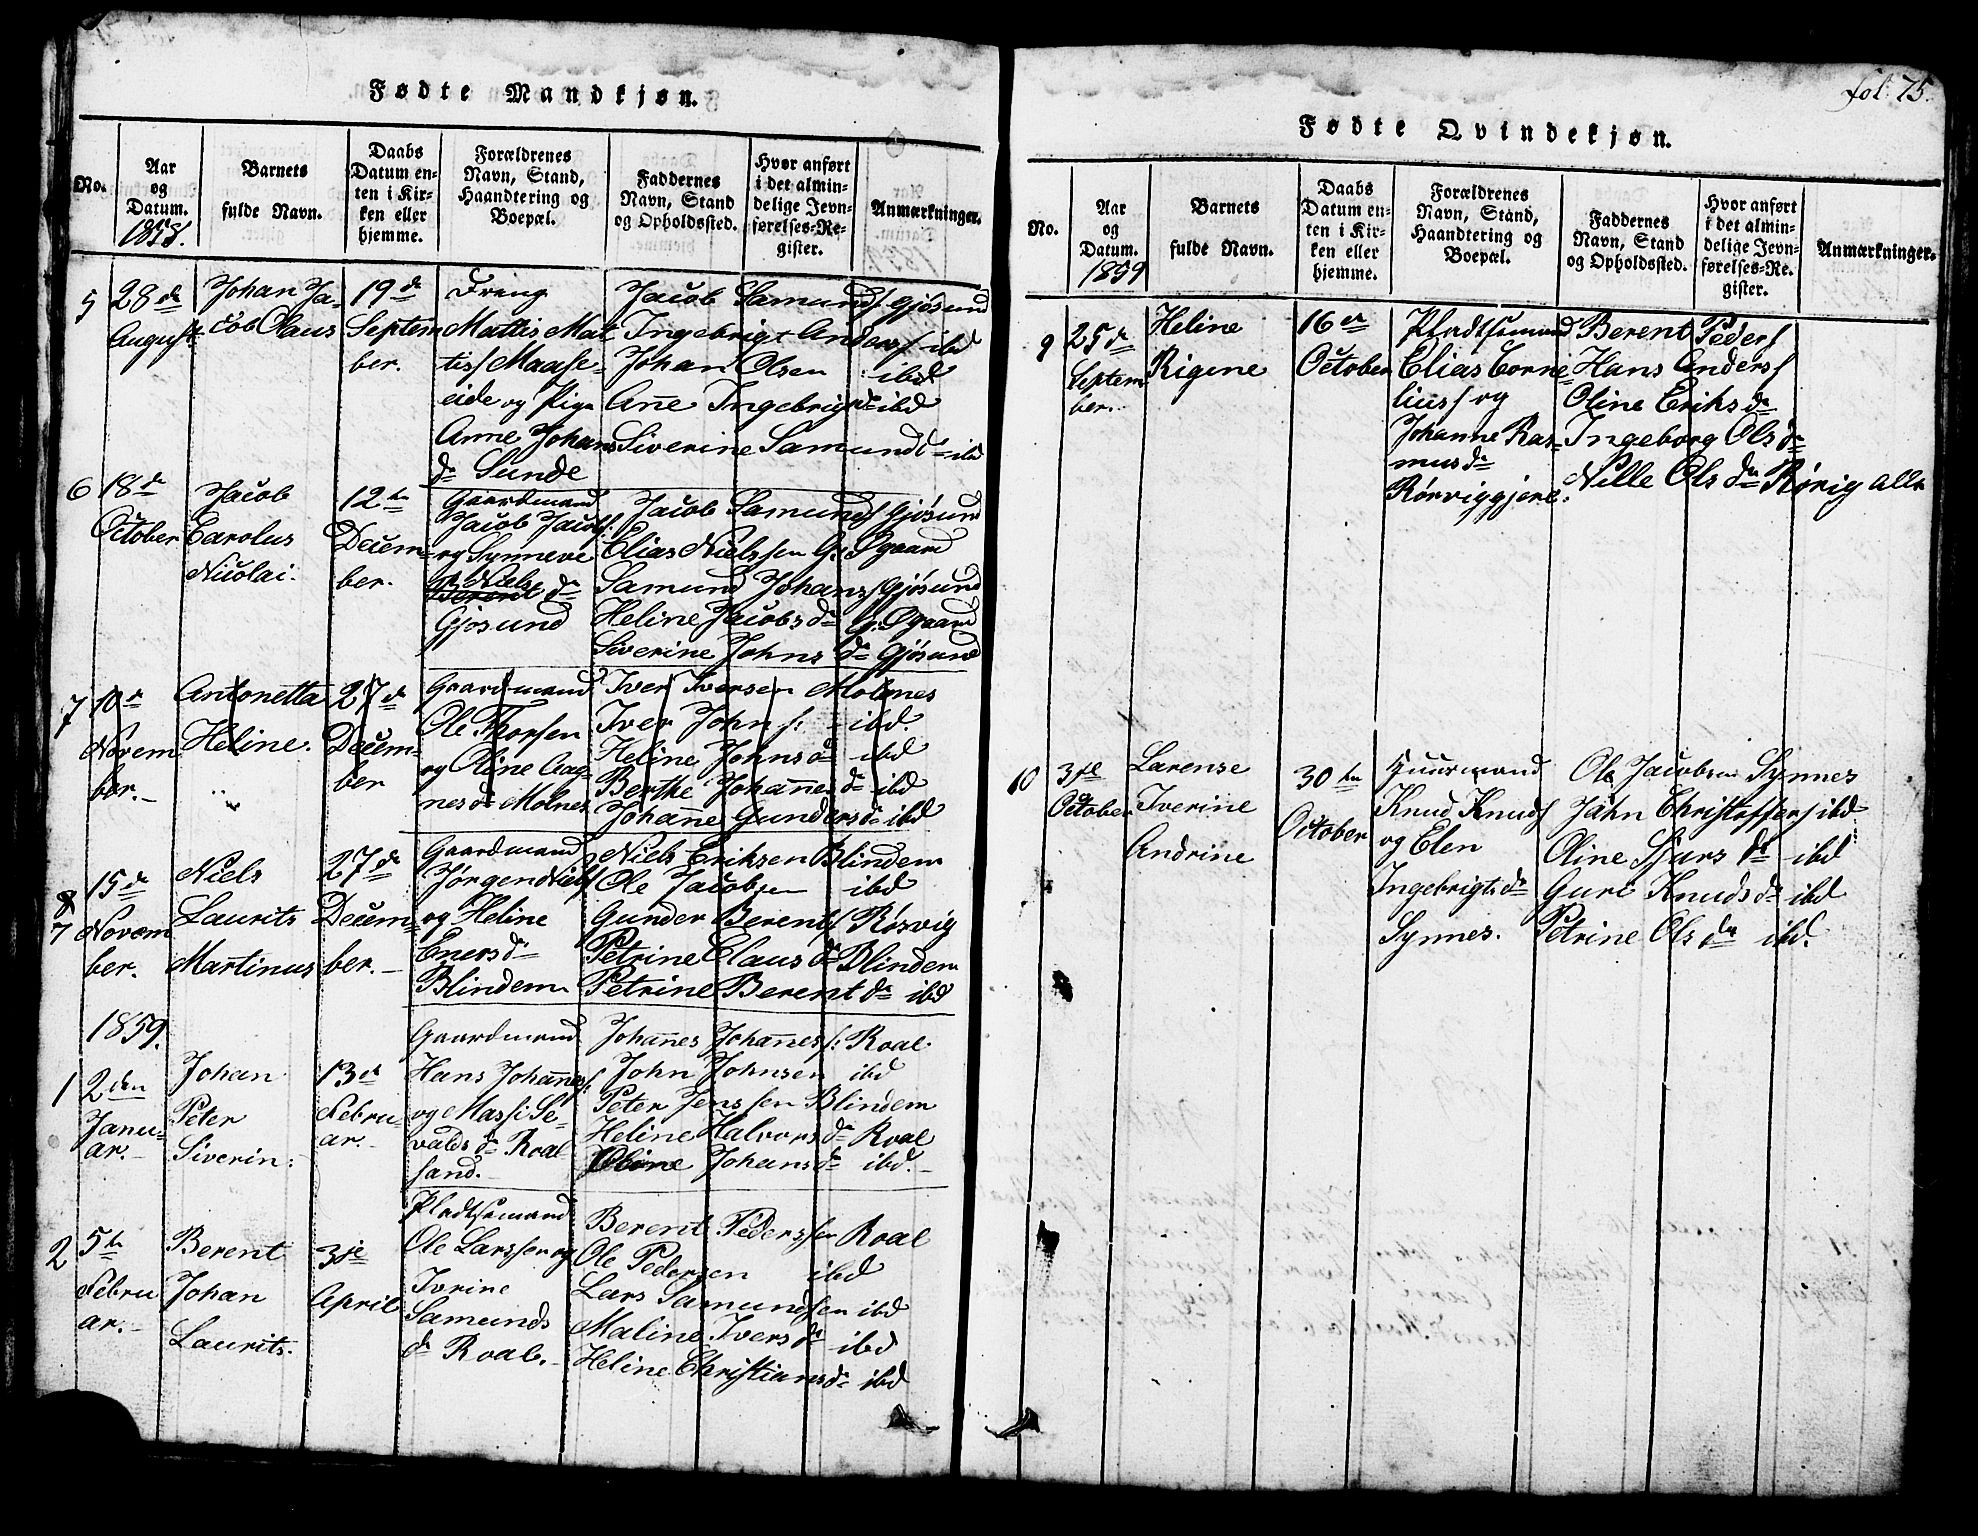 Fødte Mandkjøn.
No.
Aar
og
Datum.
1858.
Barnets
fulde Navn.
Daabs
Datum en-
ten i Kir-
ken eller
hjemme.
Forældrenes
Navn, Stand,
Haandtering og
Boepæl.
Faddernes
Navn, Stand
og Opholdssted.
Hvor anført
i det almin-
delige Jevn-
førelses-Re-
gister.
Anmærkninger.
5
28de
August
Johan Ja-
cob Olaus
19de
Septem
ber.
Dreng
Mattis Mat
tiss Maase-
eide og Pige
Anne Johans
dr Sunde
Jacob Samunds Gjøsund
Ingebrigt Anders ibd
Johan Olsen ibd
Anne Ingebrigtdr ibd
Siverine Samundd ibd
6
18de
October
Jacob
Carolus
Nicolai.
12te
Decem-
ber.
Gaardmand
Jacob Jacobs:
og Synneve
Niels
Berent dr
Gjøsund
Jacob Samunds Gjøsund
Elias Nielssen Gr. Øgaard
Samund Johans Gjøsund
Heline Jacobs dr G. Øgaard
Siverine Johns dr Gjøsund
7
10de
Novem
ber.-
Antonetta
Heline.
27de
Decem-
ber
Gaardmand
Ole Thorsen
og Oline Aag-
nesdr Molnes
Iver Iversen Molnes
Iver Johns: ibd.
Heline Johnsd ibd
Berthe Johannesdr ibd
Johanne Gundersdr ibd
8
7
15de
Novem
ber.
Niels
Laurits
Martinus
27de
Decem-
ber.-
Gaardmand
Jørgen Niels
og Heline
Enersdr
Blindem
Niels Eriksen Blindem
Ole Jacobsen ibd
Gunder Berents Rørvig
Petrine Claus dr Blindem
Petrine Berent dr ibd
1859.
1
2den
Janu-
ar.-
Johan
Peter
Siverin:
13de
Febru-
ar.-
Gaardmand
Hans Johannes:
og Massi Se-
valds dr Roal
sand.
Johannes Johannes: Roal
John Johnsen ibd
Peter Jenssen Blindem
Heline Halvors dr Roal
Oline Johansdr ibd.-
2
5te
Febru
ar.-
Berent
Johan
Laurits.
3die
April
Pladtsemand
Ole Larssen og
Ivrine
Samunds
dr Roal.-
Berent Pederssen Roal
Ole Pedersen ibd
Lars Samundsen ibd
Maline Iversdr ibd
Heline Christiansdr ibd
fol: 75.
Fødte Qvindekjøn.
No.
Aar
og
Datum.
1859
Barnets
fulde Navn.
Daabs
Datum en-
ten i Kir-
ken eller
hjemme.
Forældrenes
Navn, Stand,
Haandtering og
Boepæl.
Faddernes
Navn, Stand
og Opholdssted.
Hvor anført
i det almin-
delige Jevn-
førelses-Re-
gister.
Anmærkninger.
9
25de
Septem
ber.
Heline
Rigine
16de
October
Pladtsemand
Elias Corne-
lius og
Johanne Ras-
musdr
Rørviggjere.
Berent Peders
Hans Anders
Oline Eriksdr
Ingeborg Olsdr
Nille Ols dr Rørig alle
10
3die
October
Larense
Iverine
Andrine
30te
October
Huusmand
Knud Knuds
og Elen
Ingebrigtsdr
Synnes.
Ole Jacobsen Synnes
John Christoffers ibd.
Oline Sjurs dr ibd
Guri Knudsdr ibd
Petrine Ols dr ibd.